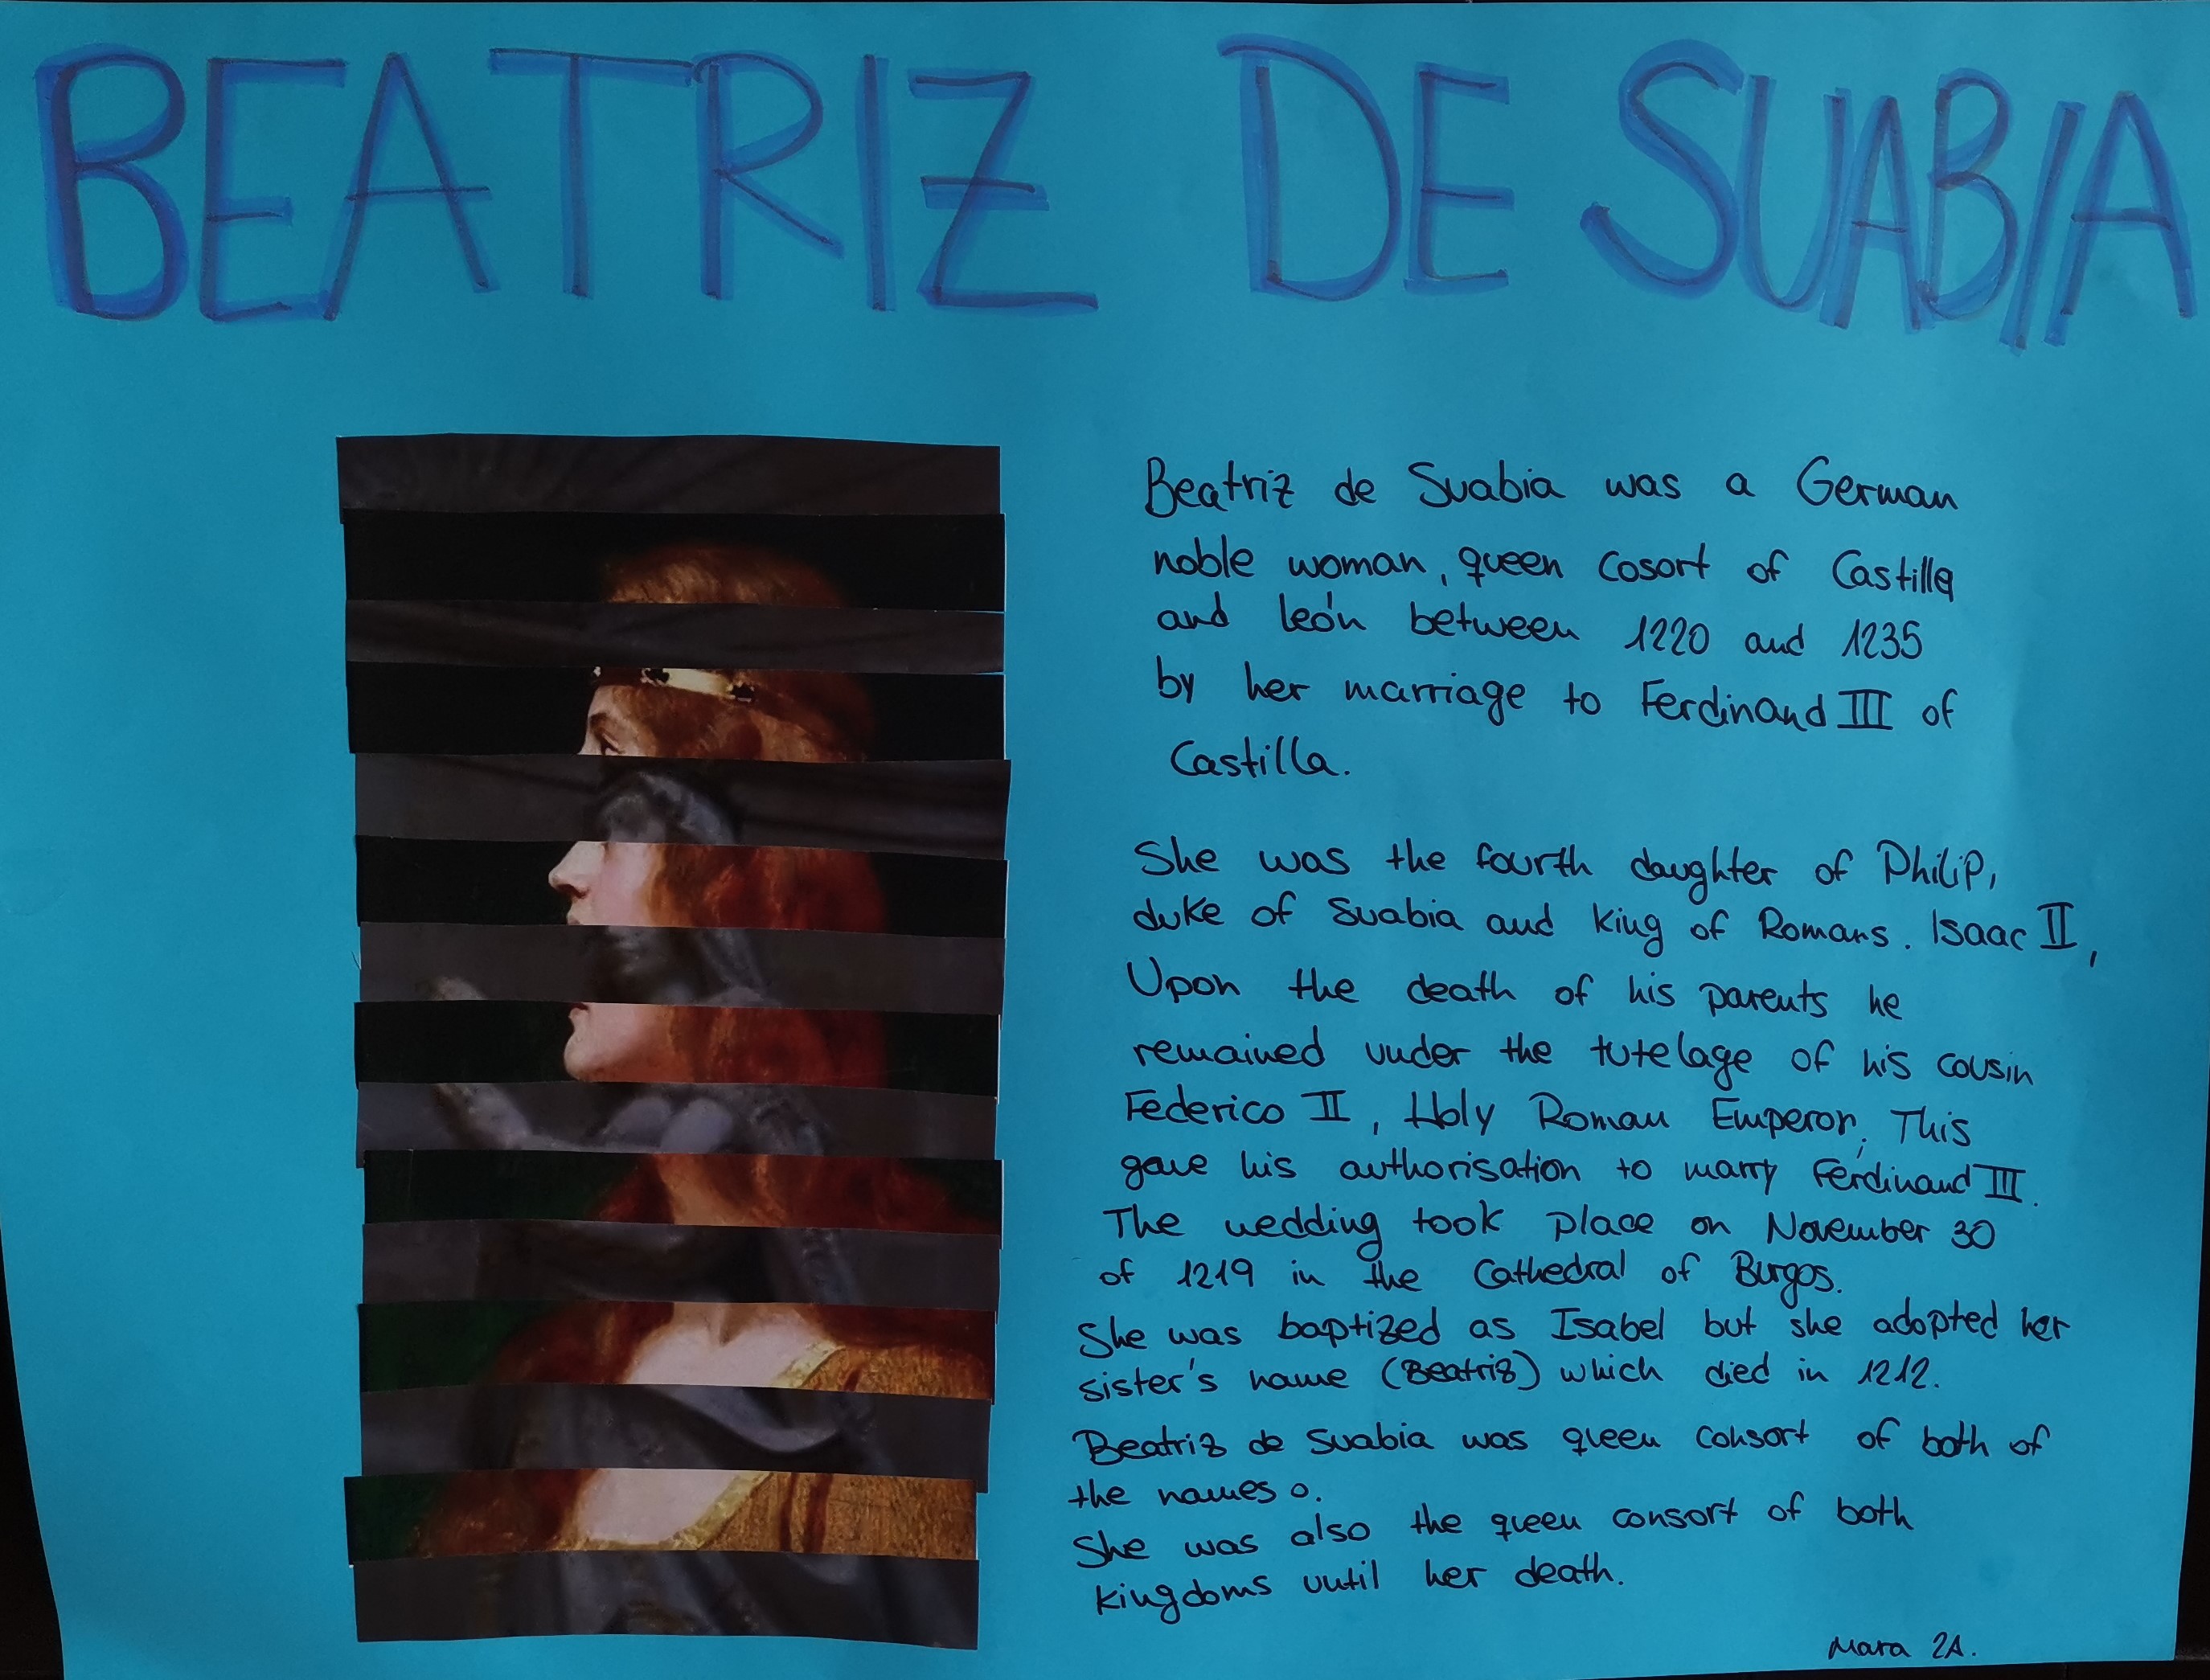 BEATRIZ DE SUABIA
Beatriz de Suabia was a German
noble woman, queen cosort of Castilla
and león between 1220 and 1235
by her marriage to Ferdinand III of
Castilla.
She was the fourth daughter of Philip,
duke of Suabia and king of Romans. Isaac II,
Upon the death of his parents he
remained under the tutelage of his cousin
Federico II, Holy Roman Emperor. This
gave his authorisation to marry Ferdinand III.
The wedding took place on November 30
of 1219 in the Cathedral of Burgos.
She was baptized as Isabel but she adopted her
sister's name (Beatriz) which died in 1212.
Beatriz de Suabia was queen consort of both of
the names o.
She was also the queen consort of both
kingdoms until her death.
Mara 2A.